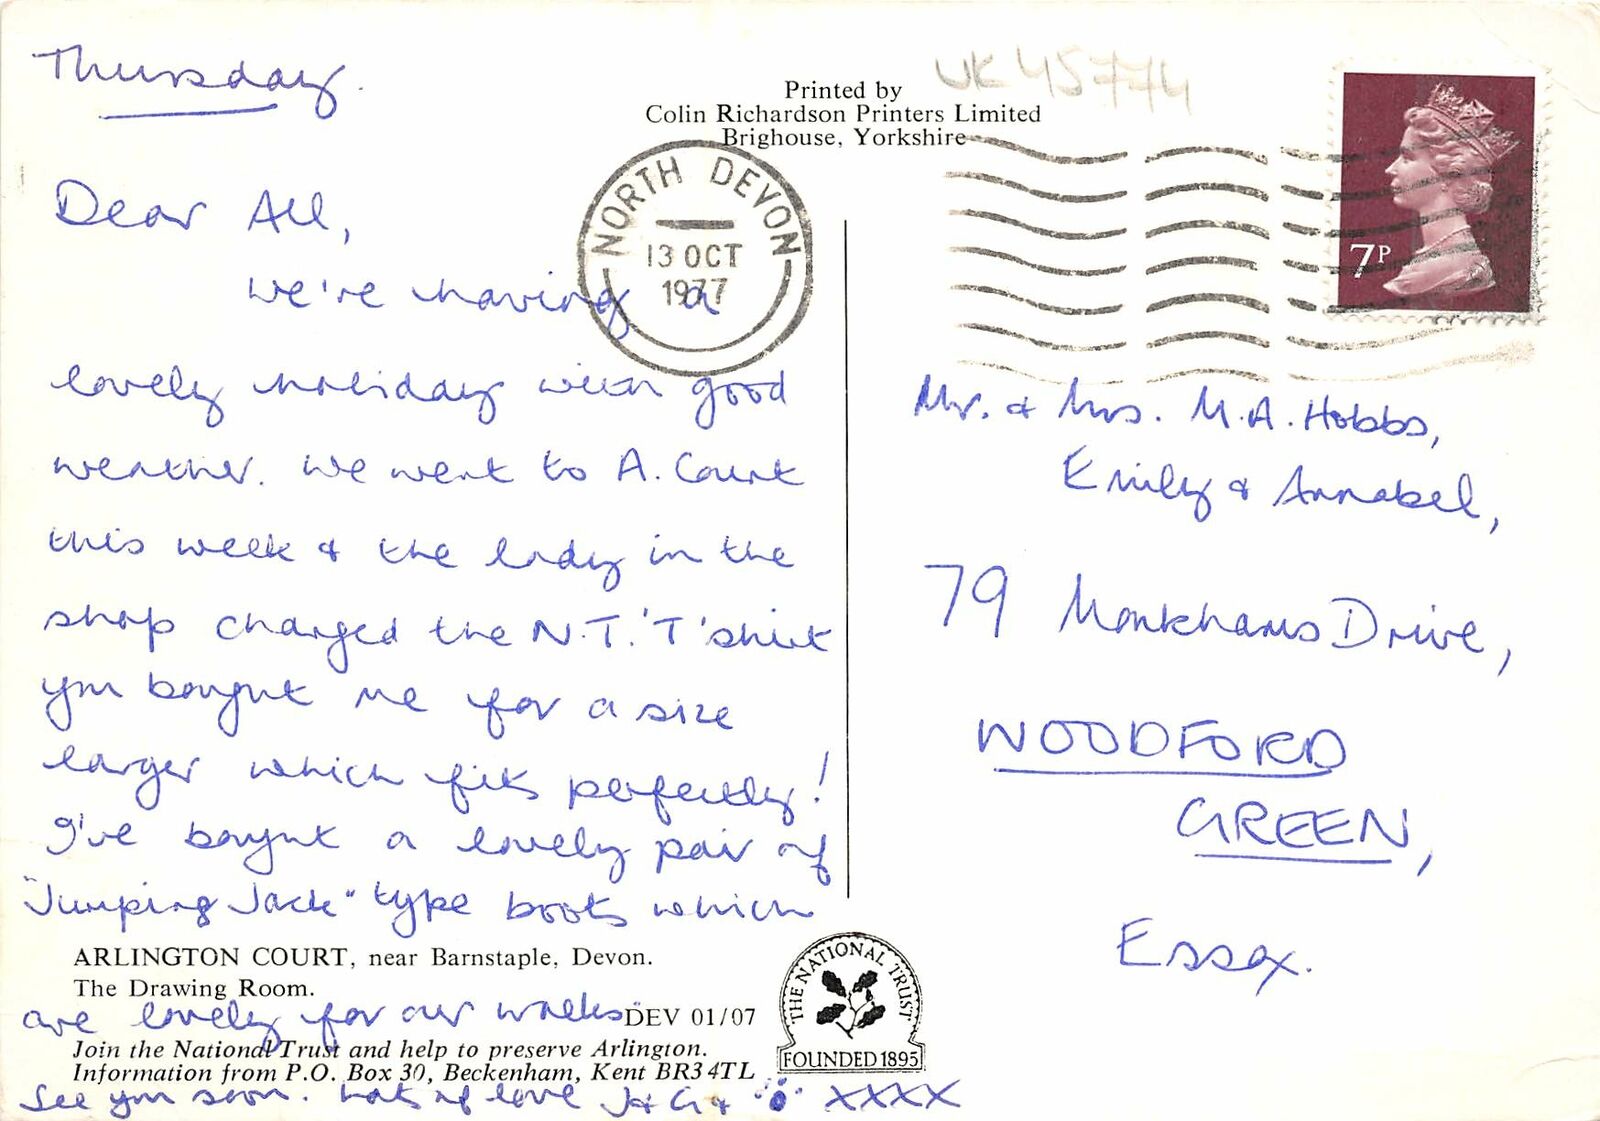 Thursday.
Dear All,
We're having a
lovely holiday with good
weather. We went to A. Court
this week & the lady in the
shop changed the N.T. 'T' shirt
you bought me for a size
larger which fits perfectly!
I've bought a lovely pair of
"Jumping Jack" type boots which
ARLINGTON COURT, near Barnstaple, Devon.
The Drawing Room.
are lovely for our walks.
DEV 01/07
Join the National Trust and help to preserve Arlington.
Information from P.O. Box 30, Beckenham, Kent BR3 4TL
See you soon. Lots of love J & G & XXXX
THE NATIONAL TRUST
FOUNDED 1895
Printed by
Colin Richardson Printers Limited
Brighouse, Yorkshire
UK45774
NORTH DEVON
13 OCT
1977
7P
Mr. & Mrs. M.A. Hobbs,
Emily & Annabel,
79 Monkhams Drive,
WOODFORD
GREEN,
Essex.